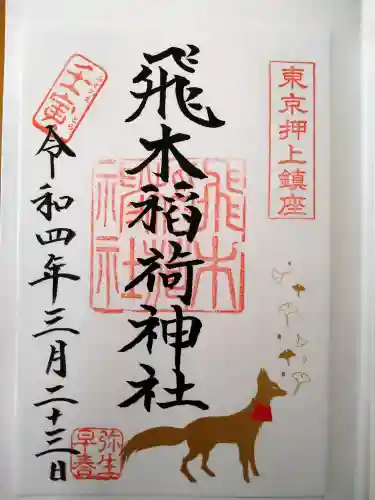 東京押上鎮座
飛木稲荷神社
壬寅
みずのえ とら
令和四年三月二十三日
弥生
早春
飛木稲荷神社